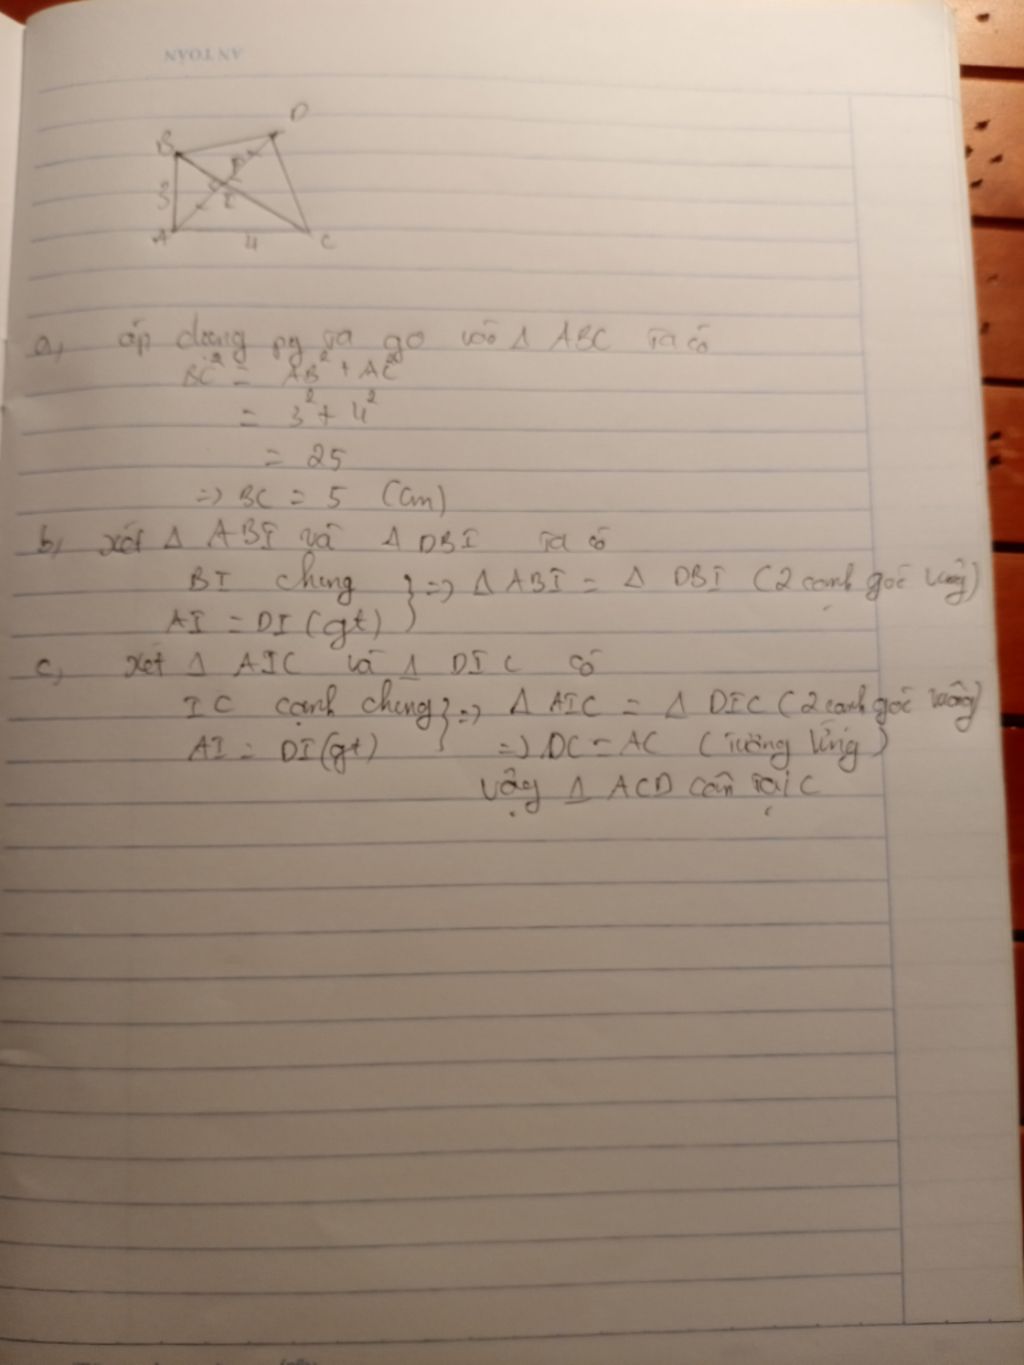 AN TOÀN
D
B
3
I
A
4
C
a, áp dụng py ta go vào Δ ABC ta có
BC² = AB² + AC²
= 3² + 4²
= 25
=> BC = 5 (cm)
b, xét Δ ABI và Δ DBI ta có
BI chung } => Δ ABI = Δ DBI (2 cạnh góc vuông)
AI = DI (gt)
c, xét Δ AIC và Δ DIC có
IC cạnh chung } => Δ AIC = Δ DIC (2 cạnh góc vuông)
AI = DI (gt) => DC = AC (tương ứng)
Vậy Δ ACD cân tại C